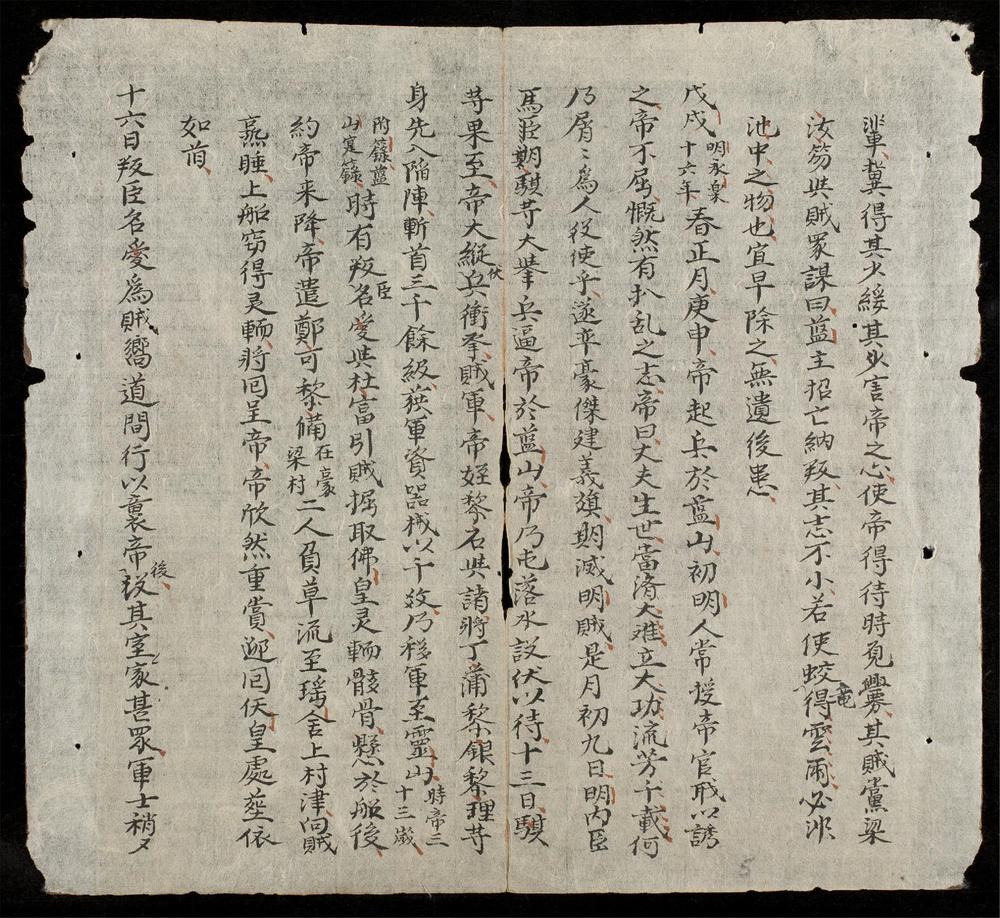 輩冀得其大綬其必害帝之心使帝得待時覓釁其賊黨梁
汝笏與賊眾謀曰藍主招亡納叛其志不小若使蛟竜得雲雨必非
池中之物也宜早除之無遺後患
戊戌明永皇十六年春正月庚申帝起兵於藍山初明人常授帝官职以誘
之帝不屈慨然有扒乱之志帝曰丈夫生世當濟大难立大功流芳千載何
乃屑〻爲人役使乎遂卒豪傑建義旗期滅明賊是月初九日明內臣
馬臣期騏䓁大舉兵逼帝於藍山帝乃屯落水設伏以待十三日騏
䓁果至帝大縱伏兵衝㧯賊軍帝姪黎石與諸將丁蒲黎銀黎理䓁
身先入陷陣斬首三千餘級獲軍資器械以千数乃移軍至靈山時帝三十三歲
附籙藍山寔籙時有叛臣名愛與杜富引賊掘取佛皇灵輀骸骨懸於船後
約帝来降帝遣鄭可黎備在豪梁村二人負草流至瑶舍上村津向賊
熹睡上船窃得灵輀將囘呈帝帝欣然重賞迎囘仸皇處塟依
如前
十六日叛臣名愛爲賊嚮道間行以襲帝後殺其室家甚眾軍士稍〻
5